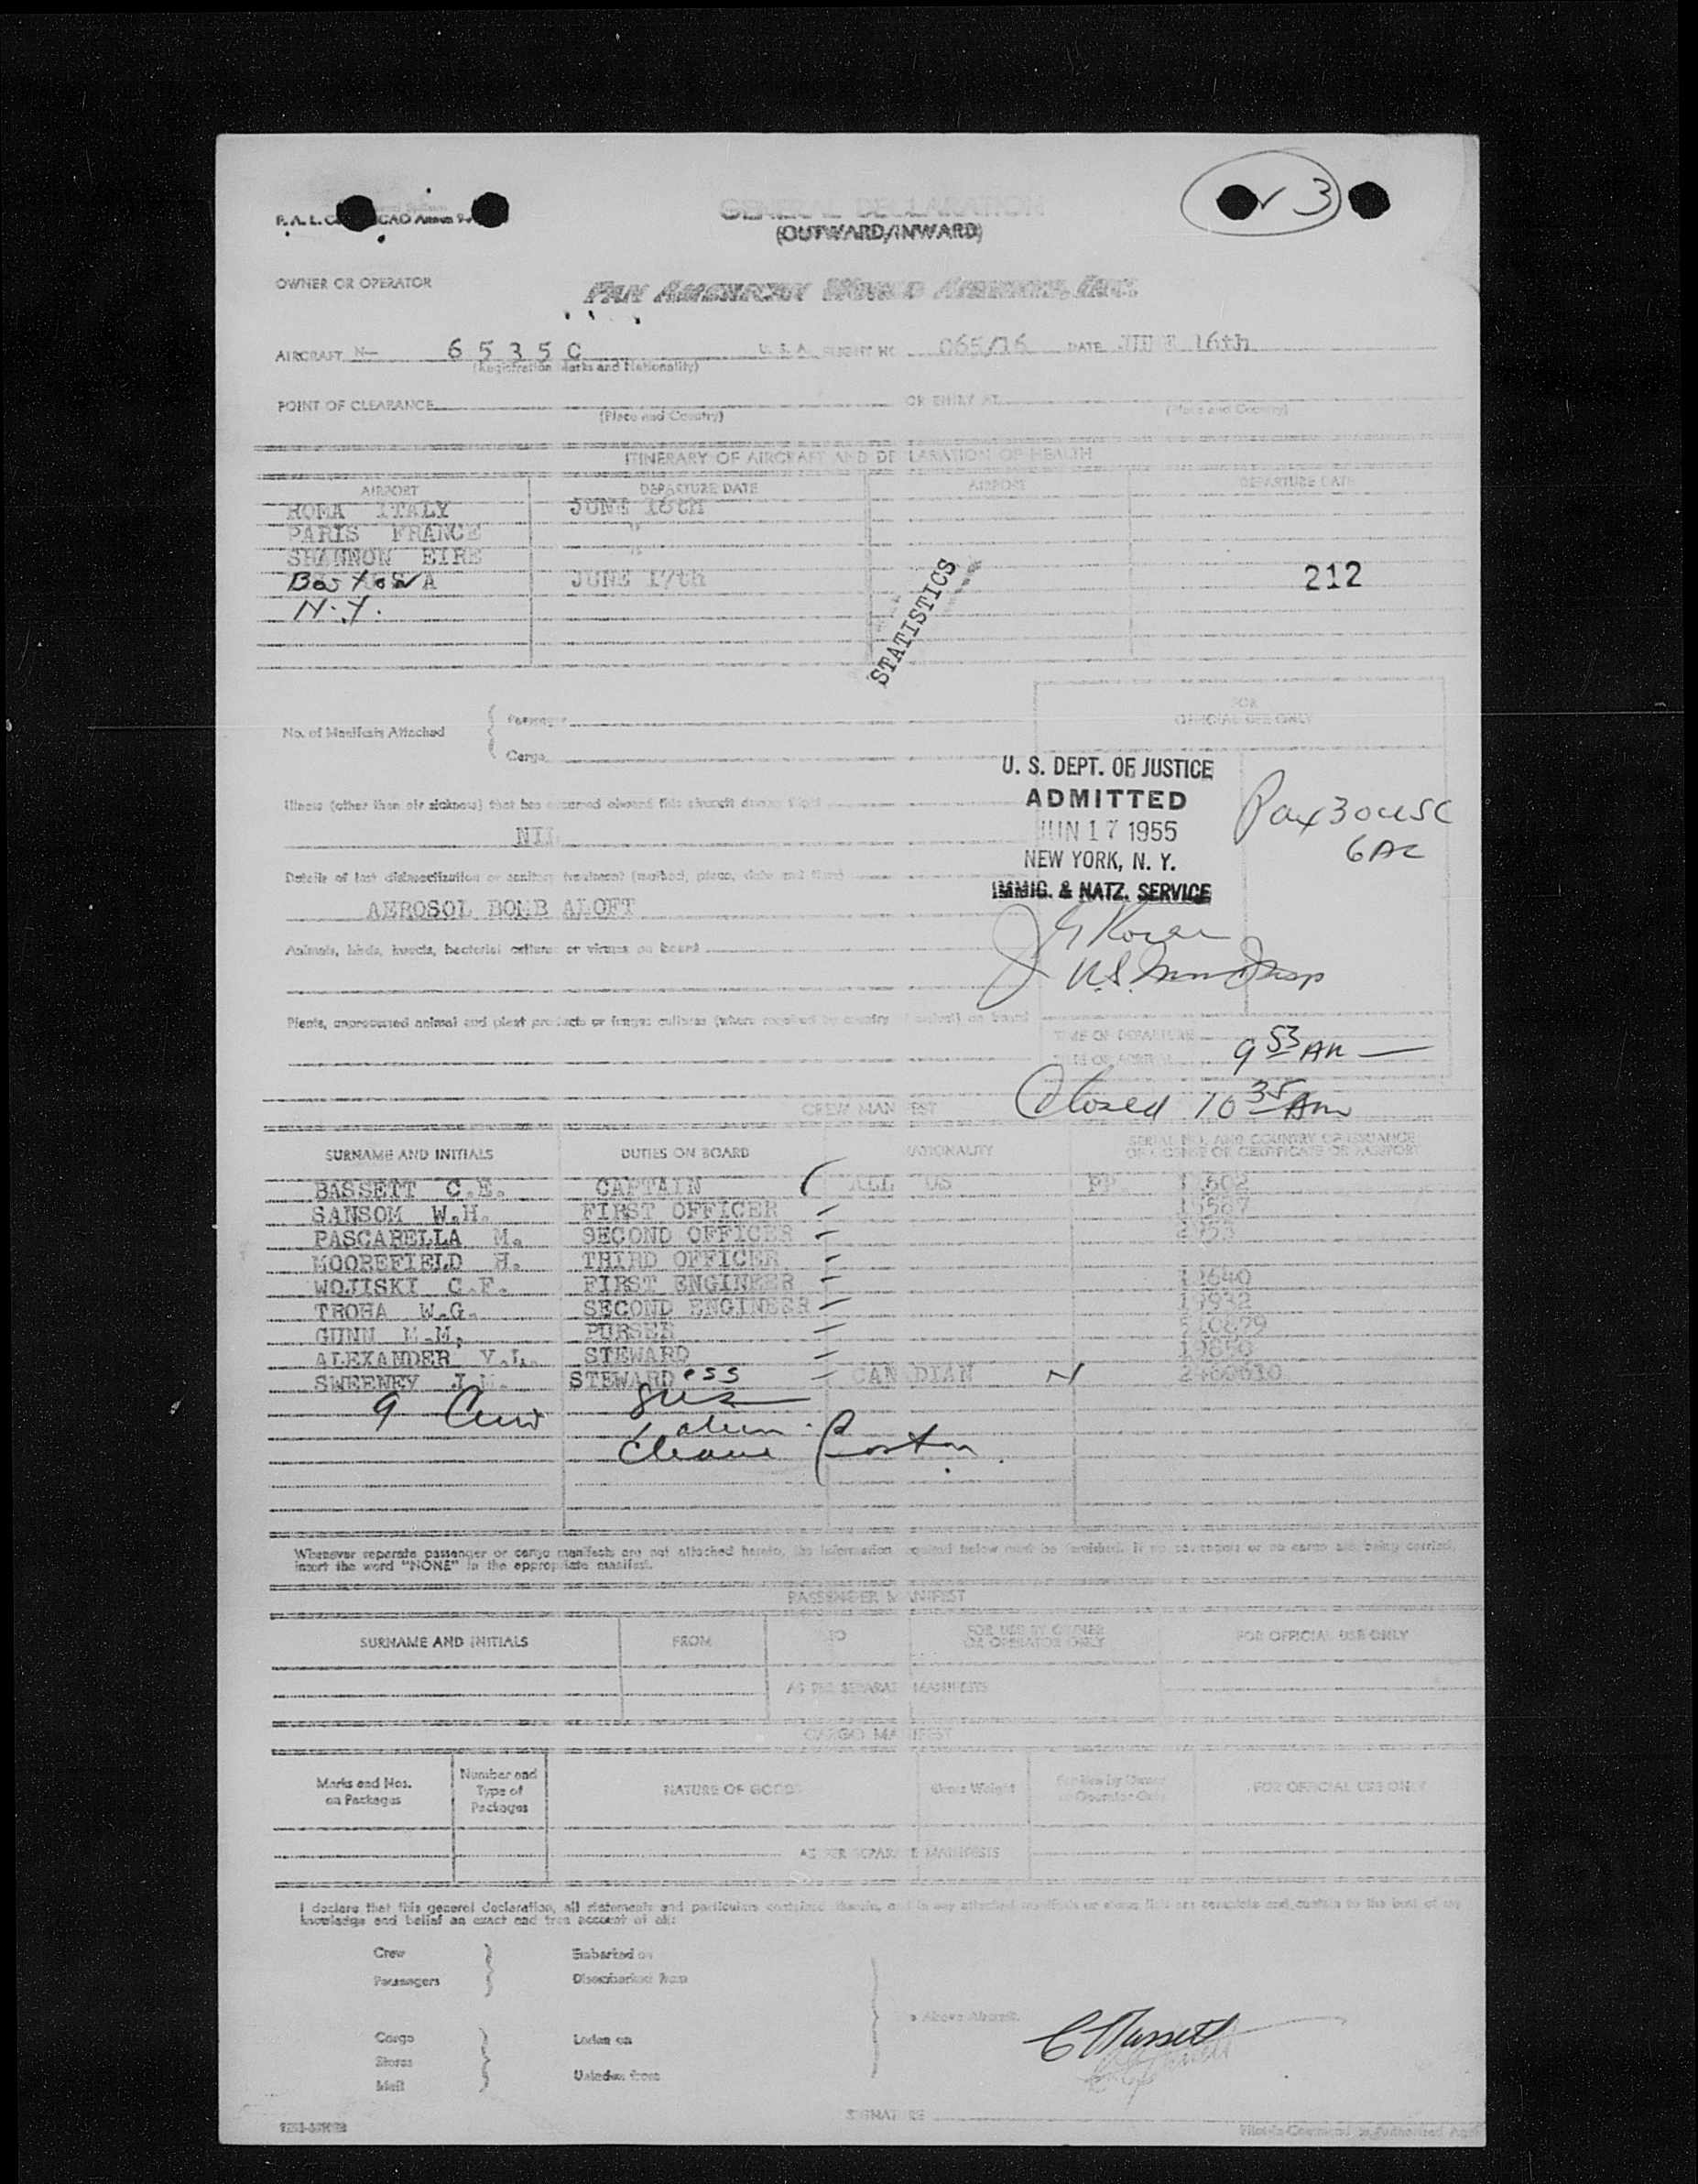 GENERAL DECLARATION
(OUTWARD/INWARD)
3
OWNER OR OPERATOR PAN AMERICAN WORLD AIRWAYS, INC.
AIRCRAFT N- 6535C U. S. A. FLIGHT NO 065/16 DATE JUNE 16th
(Registration Marks and Nationality)
POINT OF CLEARANCE OR ENTRY AT
(Place and Country) (Place and Country)
ITINERARY OF AIRCRAFT AND DECLARATION OF HEALTH
AIRPORT DEPARTURE DATE AIRPORT DEPARTURE DATE
ROMA ITALY JUNE 16th
PARIS FRANCE "
SHANNON EIRE "
Boston JUNE 17th 212
N.Y.
STATISTICS
FOR
OFFICIAL USE ONLY
No. of Manifests Attached
Passenger
Cargo
U. S. DEPT. OF JUSTICE
ADMITTED
JUN 17 1955
NEW YORK, N. Y.
IMMIG. & NATZ. SERVICE
Pax 30 USC
Illness (other than air sickness) that has occurred aboard this aircraft during flight
NIL
Details of last disinsectization or sanitary treatment (method, place, date and time)
AEROSOL BOMB ALOFT
Animals, birds, insects, bacterial cultures or viruses on board
Plants, unprocessed animal and plant products or fungus cultures (where required by country of arrival) on board
TIME OF DEPARTURE
TIME OF ARRIVAL
9 53 AM
Closed 10 35 Am
CREW MANIFEST
SURNAME AND INITIALS DUTIES ON BOARD NATIONALITY SERIAL NO. AND COUNTRY OF ISSUANCE
OF LICENSE OR CERTIFICATE OR PASSPORT
BASSETT C.E. CAPTAIN ALL US PP
SANSOM W.H. FIRST OFFICER
PASCARELLA M. SECOND OFFICER
MOOREFIELD H. THIRD OFFICER
WOJISKI C.F. FIRST ENGINEER
TROHA W.G. SECOND ENGINEER
GUNN M.M. PURSER
ALEXANDER V.L. STEWARD
SWEENEY J.M. STEWARDess CANADIAN
9 Crew 8 USC
1 alien
Cleared Boston
Whenever separate passenger or cargo manifests are not attached hereto, the information required below must be furnished. If no passengers or no cargo are being carried,
insert the word "NONE" in the appropriate manifest.
PASSENGER MANIFEST
SURNAME AND INITIALS FROM TO FOR USE BY OWNER
OR OPERATOR ONLY FOR OFFICIAL USE ONLY
AS PER SEPARATE MANIFESTS
CARGO MANIFEST
Marks and Nos.
on Packages
Number and
Type of
Packages
NATURE OF GOODS Gross Weight For Use by Owner
or Operator Only FOR OFFICIAL USE ONLY
AS PER SEPARATE MANIFESTS
I declare that this general declaration, all statements and particulars contained therein, and in any attached manifests or crews lists are complete and contain to the best of my
knowledge and belief an exact and true account of all:
Crew Embarked on
Passengers Disembarked from
Above Aircraft.
Cargo Laden on
Stores
Mail Unladen from
SIGNATURE
Pilot-in-Command or Authorized Agent